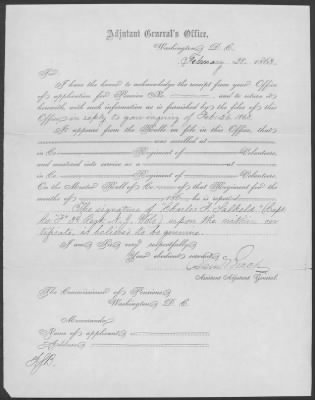 Adjutant General's Office,
Washington, D. C.
February 28, 1863.
Sir:
I have the honor to acknowledge the receipt from your Office
of application for Pension No. and to return it
herewith, with such information as is furnished by the files of this
Office in reply to your enquiry of Feb. 26 1863.
It appears from the Rolls on file in this Office, that
was enrolled at
in Co. Regiment of Volunteers,
and mustered into service as a at
in Co. Regiment of Volunteers.
On the Muster Roll of Co. of that Regiment for the
months of 186 he is reported
The signature of Charles Capt.
Co. Regt. N.J. Vols. upon the within cer-
tificate, is believed to be genuine.
I am Sir, very respectfully
Your obedient servant
Assistant Adjutant General.
The Commissioner of Pensions
Washington, D. C.
Memoranda.
Name of applicant
Address